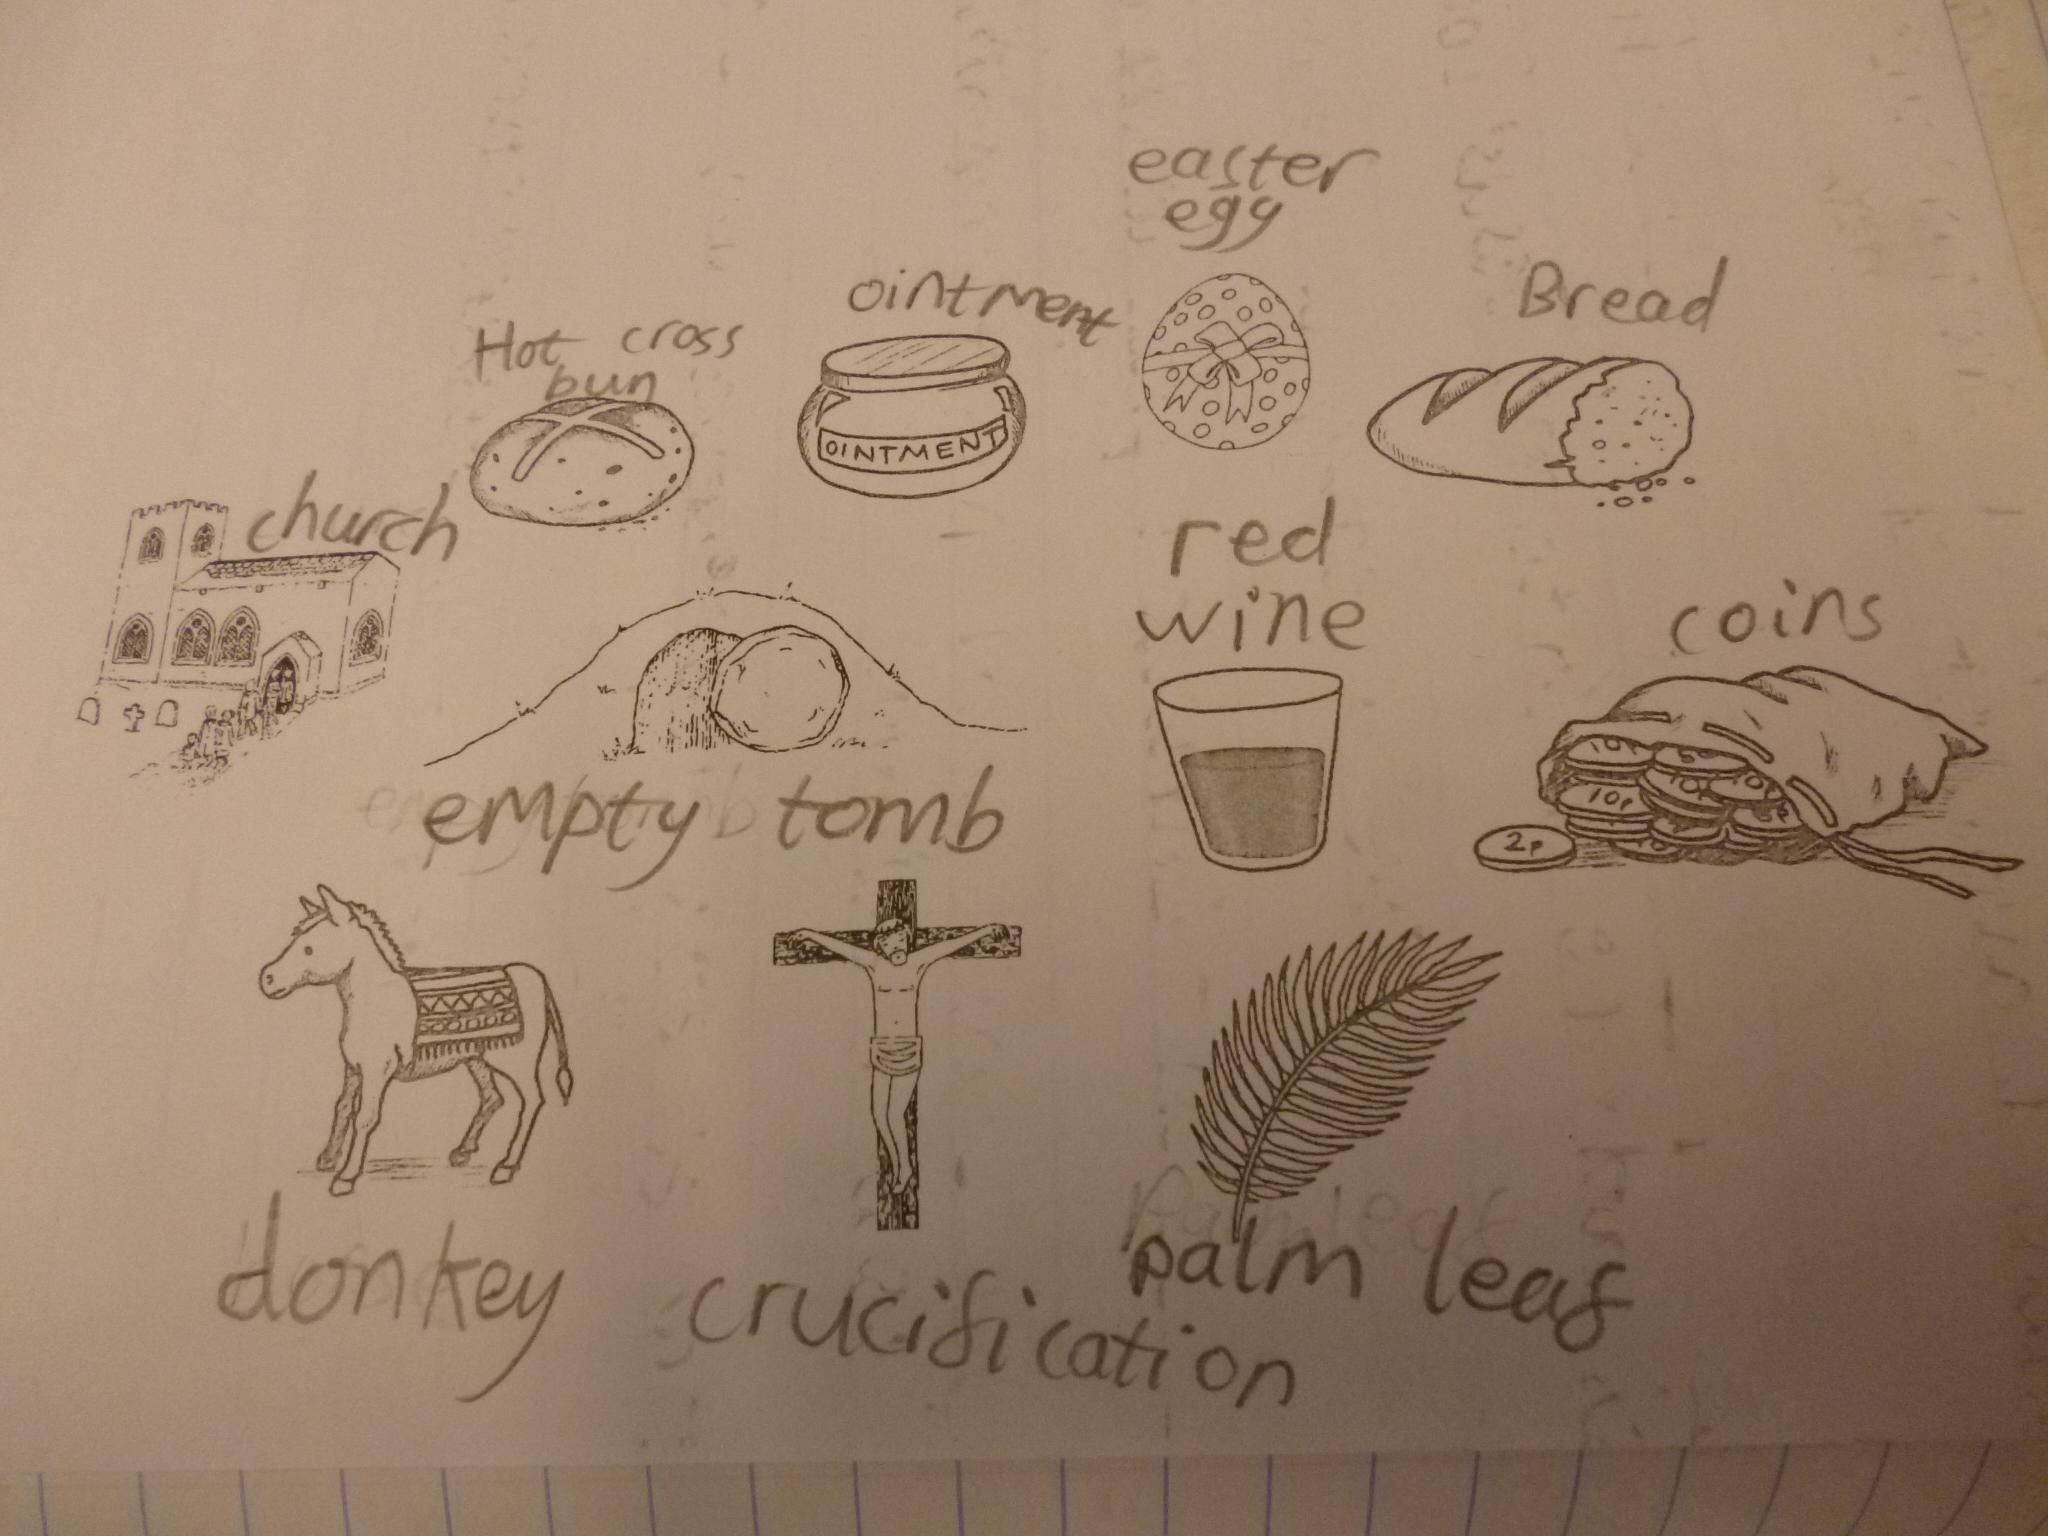 easter
egg
Hot cross
bun
ointment
OINTMENT
Bread
church
red
wine
coins
10p
2p
empty tomb
donkey
crucification
palm leaf